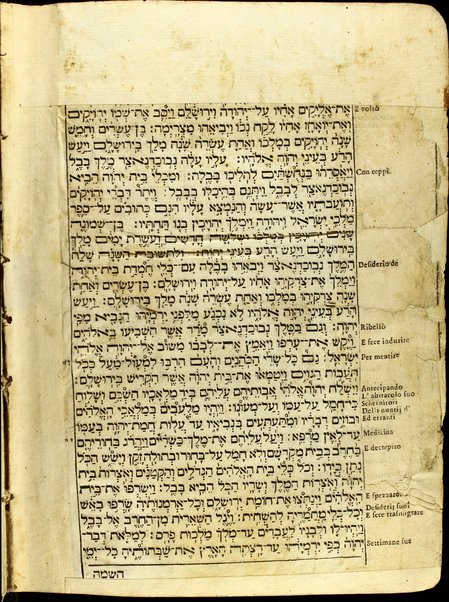 את־אליקים אחיו על־יהודה וירושלם ויסב את־שמו יהויקים
E voltò
ואת־יואחז אחיו לקח נכו ויביאהו מצרימה: בן־עשרים וחמש
שנה יהויקים במלכו ואחת עשרה שנה מלך בירושלם ויעש
הרע בעיני יהוה אלהיו: עליו עלה נבוכדנאצר מלך בבל
ויאסרהו בנחשתים להליכו בבלה: ומכלי בית יהוה הביא
Con ceppi
נבוכדנאצר לבבל ויתנם בהיכלו בבבל: ויתר דברי יהויקים
ותועבתיו אשר־עשה והנמצא עליו הנם כתובים על־ספר
מלכי ישראל ויהודה וימלך יהויכין בנו תחתיו: בן־שמונה
שנים יהויכין במלכו ושלשה חדשים ועשרת ימים מלך
בירושלם ויעש הרע בעיני יהוה: ולתשובת השנה שלח
המלך נבוכדנאצר ויבאהו בבלה עם־כלי חמדת בית־יהוה
Desiderio de
וימלך את־צדקיהו אחיו על־יהודה וירושלם: בן־עשרים ואחת
שנה צדקיהו במלכו ואחת עשרה שנה מלך בירושלם: ויעש
הרע בעיני יהוה אלהיו לא נכנע מלפני ירמיהו הנביא מפי
יהוה: וגם במלך נבוכדנאצר מרד אשר השביעו באלהים
Ribellò
ויקש את־ערפו ויאמץ את־לבבו משוב אל־יהוה אלהי
E fece indurire
ישראל: גם כל שרי הכהנים והעם הרבו למעול מעל ככל
Per mentire
תעבות הגוים ויטמאו את־בית יהוה אשר הקדיש בירושלם:
וישלח יהוה אלהי אבותיהם עליהם ביד מלאכיו השכם ושלוח
Antecipando
כי־חמל על־עמו ועל־מעונו: ויהיו מלעבים במלאכי האלהים
L'abitacolo suo
Schernitori
ובוזים דבריו ומתעתעים בנביאיו עד עלות חמת־יהוה בעמו
Delli nuntij d'
Ed erranti
עד־לאין מרפא: ויעל עליהם את־מלך כשדיים ויהרג בחוריהם
Medicina
בחרב בבית מקדשם ולא חמל על־בחור ובתולה זקן וישש הכל
E decrepito
נתן בידו: וכל כלי בית האלהים הגדלים והקטנים ואצרות בית
יהוה ואצרות המלך ושריו הכל הביא בבל: וישרפו את־בית
האלהים וינתצו את חומת ירושלם וכל־ארמנותיה שרפו באש
E spezzaron
וכל־כלי מחמדיה להשחית: ויגל השארית מן־החרב אל־בבל
Desiderij suoi
E fece trasmigrare
ויהיו־לו ולבניו לעבדים עד־מלך מלכות פרס: למלאת דבר־
יהוה בפי ירמיהו עד־רצתה הארץ את־שבתותיה כל־ימי
Settimane sue
השמה